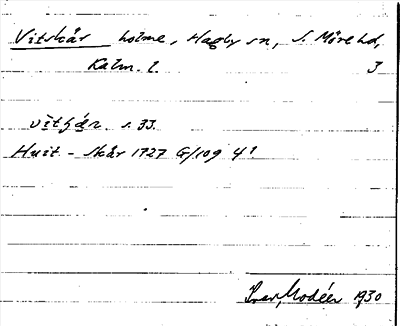 Vitskär holme, Hagby sn, S. Möre hd,
Kalm. l. 3
s. 33.
Huit - skär 1727 G/109 4¹
Ivar Modéer 1930